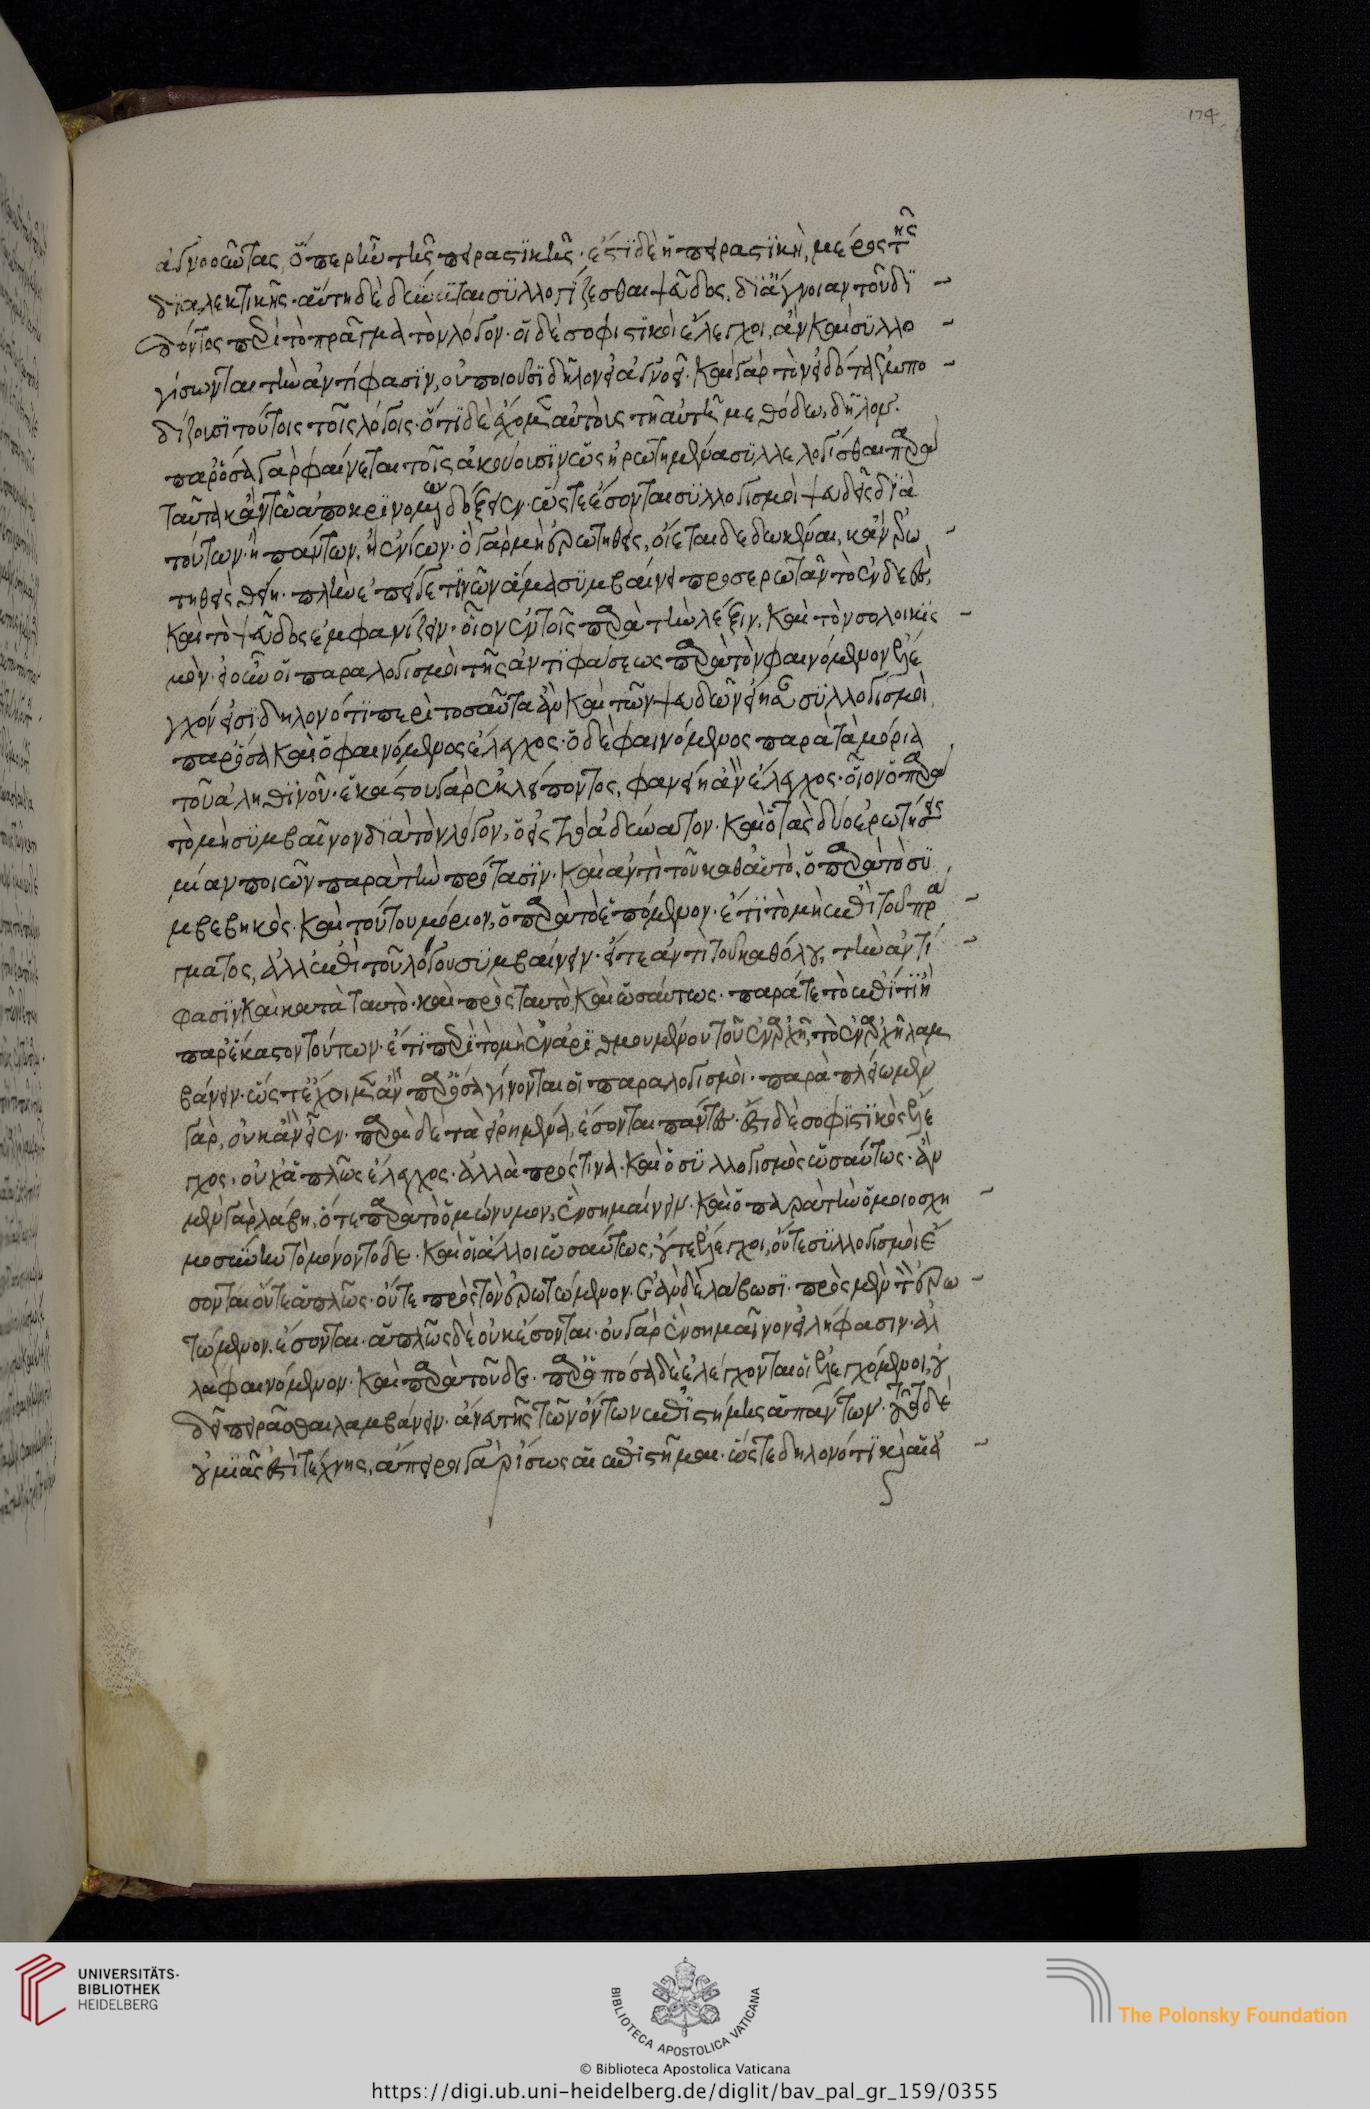 ἀγνοοῦντας, ὅπερ ἦν τῆς πειραστικῆς· ἔστι δὲ ἡ πειραστικὴ, μέρος τῆς
διαλεκτικῆς· αὕτη δὲ δύναται συλλογίζεσθαι ψεῦδος, δι' ἄγνοιαν τοῦ δι
δόντος περὶ τὸ πρᾶγμα τὸν λόγον· οἱ δὲ σοφιστικοὶ ἔλεγχοι, ἂν καὶ συλλο
γίσωνται τὴν ἀντίφασιν, οὐ ποιοῦσι δῆλον εἰ ἀγνοεῖ· καὶ γὰρ τὸν εἰδότα ἐμπο
δίζουσι τούτοις τοῖς λόγοις· ὅτι δὲ ἔχομεν αὐτοὺς τῇ αὐτῇ μεθόδω, δῆλον·
παρ' ὅσα γὰρ φαίνεται τοῖς ἀκούουσιν ὡς ἠρωτημένα συλλελογίσθαι παρὰ
ταῦτα κἂν τῶ ἀποκρινομένω δόξειεν· ὥστε ἔσονται συλλογισμοὶ ψευδεῖς διὰ
τούτων· ἢ πάντων, ἢ ἐνίων· ὃ γὰρ μὴ ἐρωτηθεὶς, οἴεται δεδωκέναι, κἂν ἐρω
τηθεὶς θείη· πλὴν ἐπεί γε τινῶν ἅμα συμβαίνει προσερωτᾶν τὸ ἐνδεὲς,
καὶ τὸ ψεῦδος ἐμφανίζειν· οἷον ἐν τοῖς παρὰ τὴν λέξιν, καὶ τὸν σολοικισ
μόν· εἰ οὖν οἱ παραλογισμοὶ τῆς ἀντιφάσεως παρὰ τὸν φαινόμενον ἔλε
γχόν εἰσι· δῆλον ὅτι περὶ τοσαῦτα ἂν καὶ τῶν ψευδῶν εἴησαν συλλογισμοὶ
παρ' ὅσα καὶ ὁ φαινόμενος ἔλεγχος· ὁ δὲ φαινόμενος παρὰ τὰ μόρια
τοῦ ἀληθινοῦ· ἑκάστου γὰρ ἐκλείποντος, φανείη ἂν ἔλεγχος· οἷον ὁ παρὰ
τὸ μὴ συμβαῖνον διὰ τὸν λόγον, ὁ εἰς τὸ ἀδύνατον· καὶ ὁ τὰς δύο ἐρωτήσεις
μίαν ποιῶν παρὰ τὴν πρότασιν· καὶ ἀντὶ τοῦ καθ' αὑτὸ, ὁ παρὰ τὸ συ
μβεβηκός· καὶ τούτου μόριον, ὁ παρὰ τὸ ἑπόμενον· ἔτι τὸ μὴ ἐπὶ τοῦ πρά
γματος, ἀλλ' ἐπὶ τοῦ λόγου συμβαίνειν· εἴτε ἀντὶ τοῦ καθόλου, τὴν ἀντί
φασιν καὶ κατὰ ταυτὸ· καὶ πρὸς ταυτὸ, καὶ ὡσαύτως· παρά τε τὸ ἐπί τι ἢ
παρ' ἕκαστον τούτων· ἔτι περὶ τὸ μὴ ἐναριθμουμένου τοῦ ἐν ἀρχῇ, τὸ ἐν ἀρχῇ λαμ
βάνειν· ὥστ' ἔχοιμεν ἂν παρ' ὅσα γίνονται οἱ παραλογισμοὶ· παρὰ πλείω μὲν
γὰρ, οὐκ ἂν εἶεν· παρὰ δὲ τὰ εἰρημένα, ἔσονται πάντες· ἔστι δὲ σοφιστικὸς ἔλε
γχος, οὐχ ἁπλῶς ἔλεγχος· ἀλλὰ πρός τινα· καὶ ὁ συλλογισμὸς ὡσαύτως· ἂν
μὲν γὰρ λάβη, ὅ τε παρὰ τὸ ὁμώνυμον, ἓν σημαίνειν· καὶ ὁ παρὰ τὴν ὁμοιοσχη
μοσύνην τὸ μόνον τόδε· καὶ οἱ ἄλλοι ὡσαύτως, οὔτ' ἔλεγχοι, οὔτε συλλογισμοὶ ἔ
σονται οὔτε ἁπλῶς· οὔτε πρὸς τὸν ἐρωτώμενον· ἐὰν δὲ λάβωσι· πρὸς μὲν τὸν ἐρω
τώμενον, ἔσονται· ἁπλῶς δὲ οὐκ ἔσονται· οὐ γὰρ ἓν σημαῖνον εἰλήφασιν· ἀλ
λὰ φαινόμενον· καὶ παρὰ τοῦδε· παρὰ πόσα δὲ ἐλέγχονται οἱ ἐλεγχόμενοι, οὐ
δεῖ πειρᾶσθαι λαμβάνειν· ἄνευ τῆς τῶν ὄντων ἐπιστήμης ἁπάντων· τοῦτο δὲ
οὐ μιᾶς ἐστὶ τέχνης, ἄπειροι γὰρ ἴσως αἱ ἐπιστῆμαι· ὥστε δῆλον ὅτι καὶ αἱ ἀ
174
UNIVERSITÄTS-
BIBLIOTHEK
HEIDELBERG
BIBLIOTECA APOSTOLICA VATICANA
The Polonsky Foundation
© Biblioteca Apostolica Vaticana
https://digi.ub.uni-heidelberg.de/diglit/bav_pal_gr_159/0355